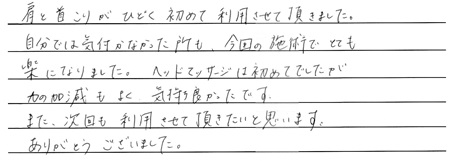 肩と首こりがひどく初めて利用させて頂きました。
自分では気付かなかった所も、今回の施術でとても
楽になりました。ヘッドマッサージは初めてでしたが
力の加減もよく気持ち良かったです。
また、次回も利用させて頂きたいと思います。
ありがとうございました。